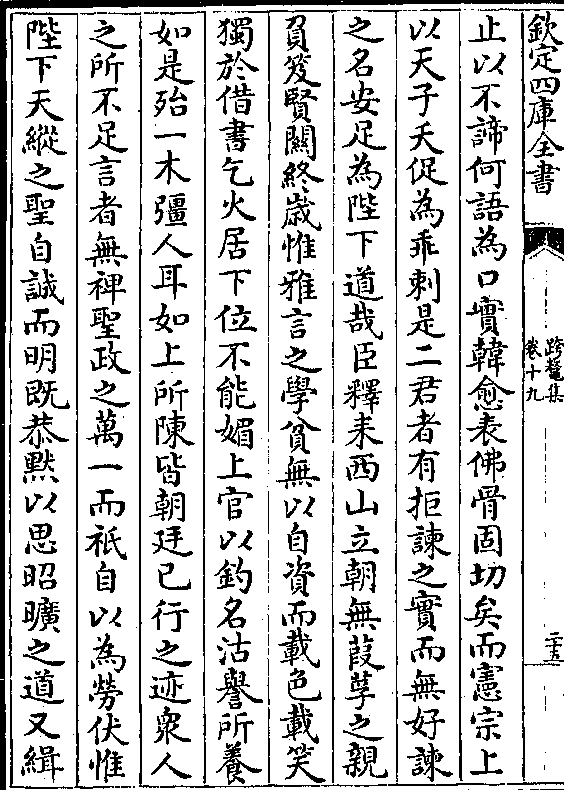 欽定四庫全書
跨鼇集
卷十九
二十五
止以不諦何語為口實韓愈表佛骨固切矣而憲宗上
以天子夭促為乖刺是二君者有拒諫之實而無好諫
之名安足為陛下道哉臣釋耒西山立朝無葭莩之親
負笈賢關終歲惟雅言之學貧無以自資而載色載笑
獨於借書乞火居下位不能媚上官以釣名沽譽所養
如是殆一木彊人耳如上所陳皆朝廷已行之迹衆人
之所不足言者無裨聖政之萬一而祇自以為勞伏惟
陛下天縱之聖自誠而明既恭黙以思昭曠之道又緝